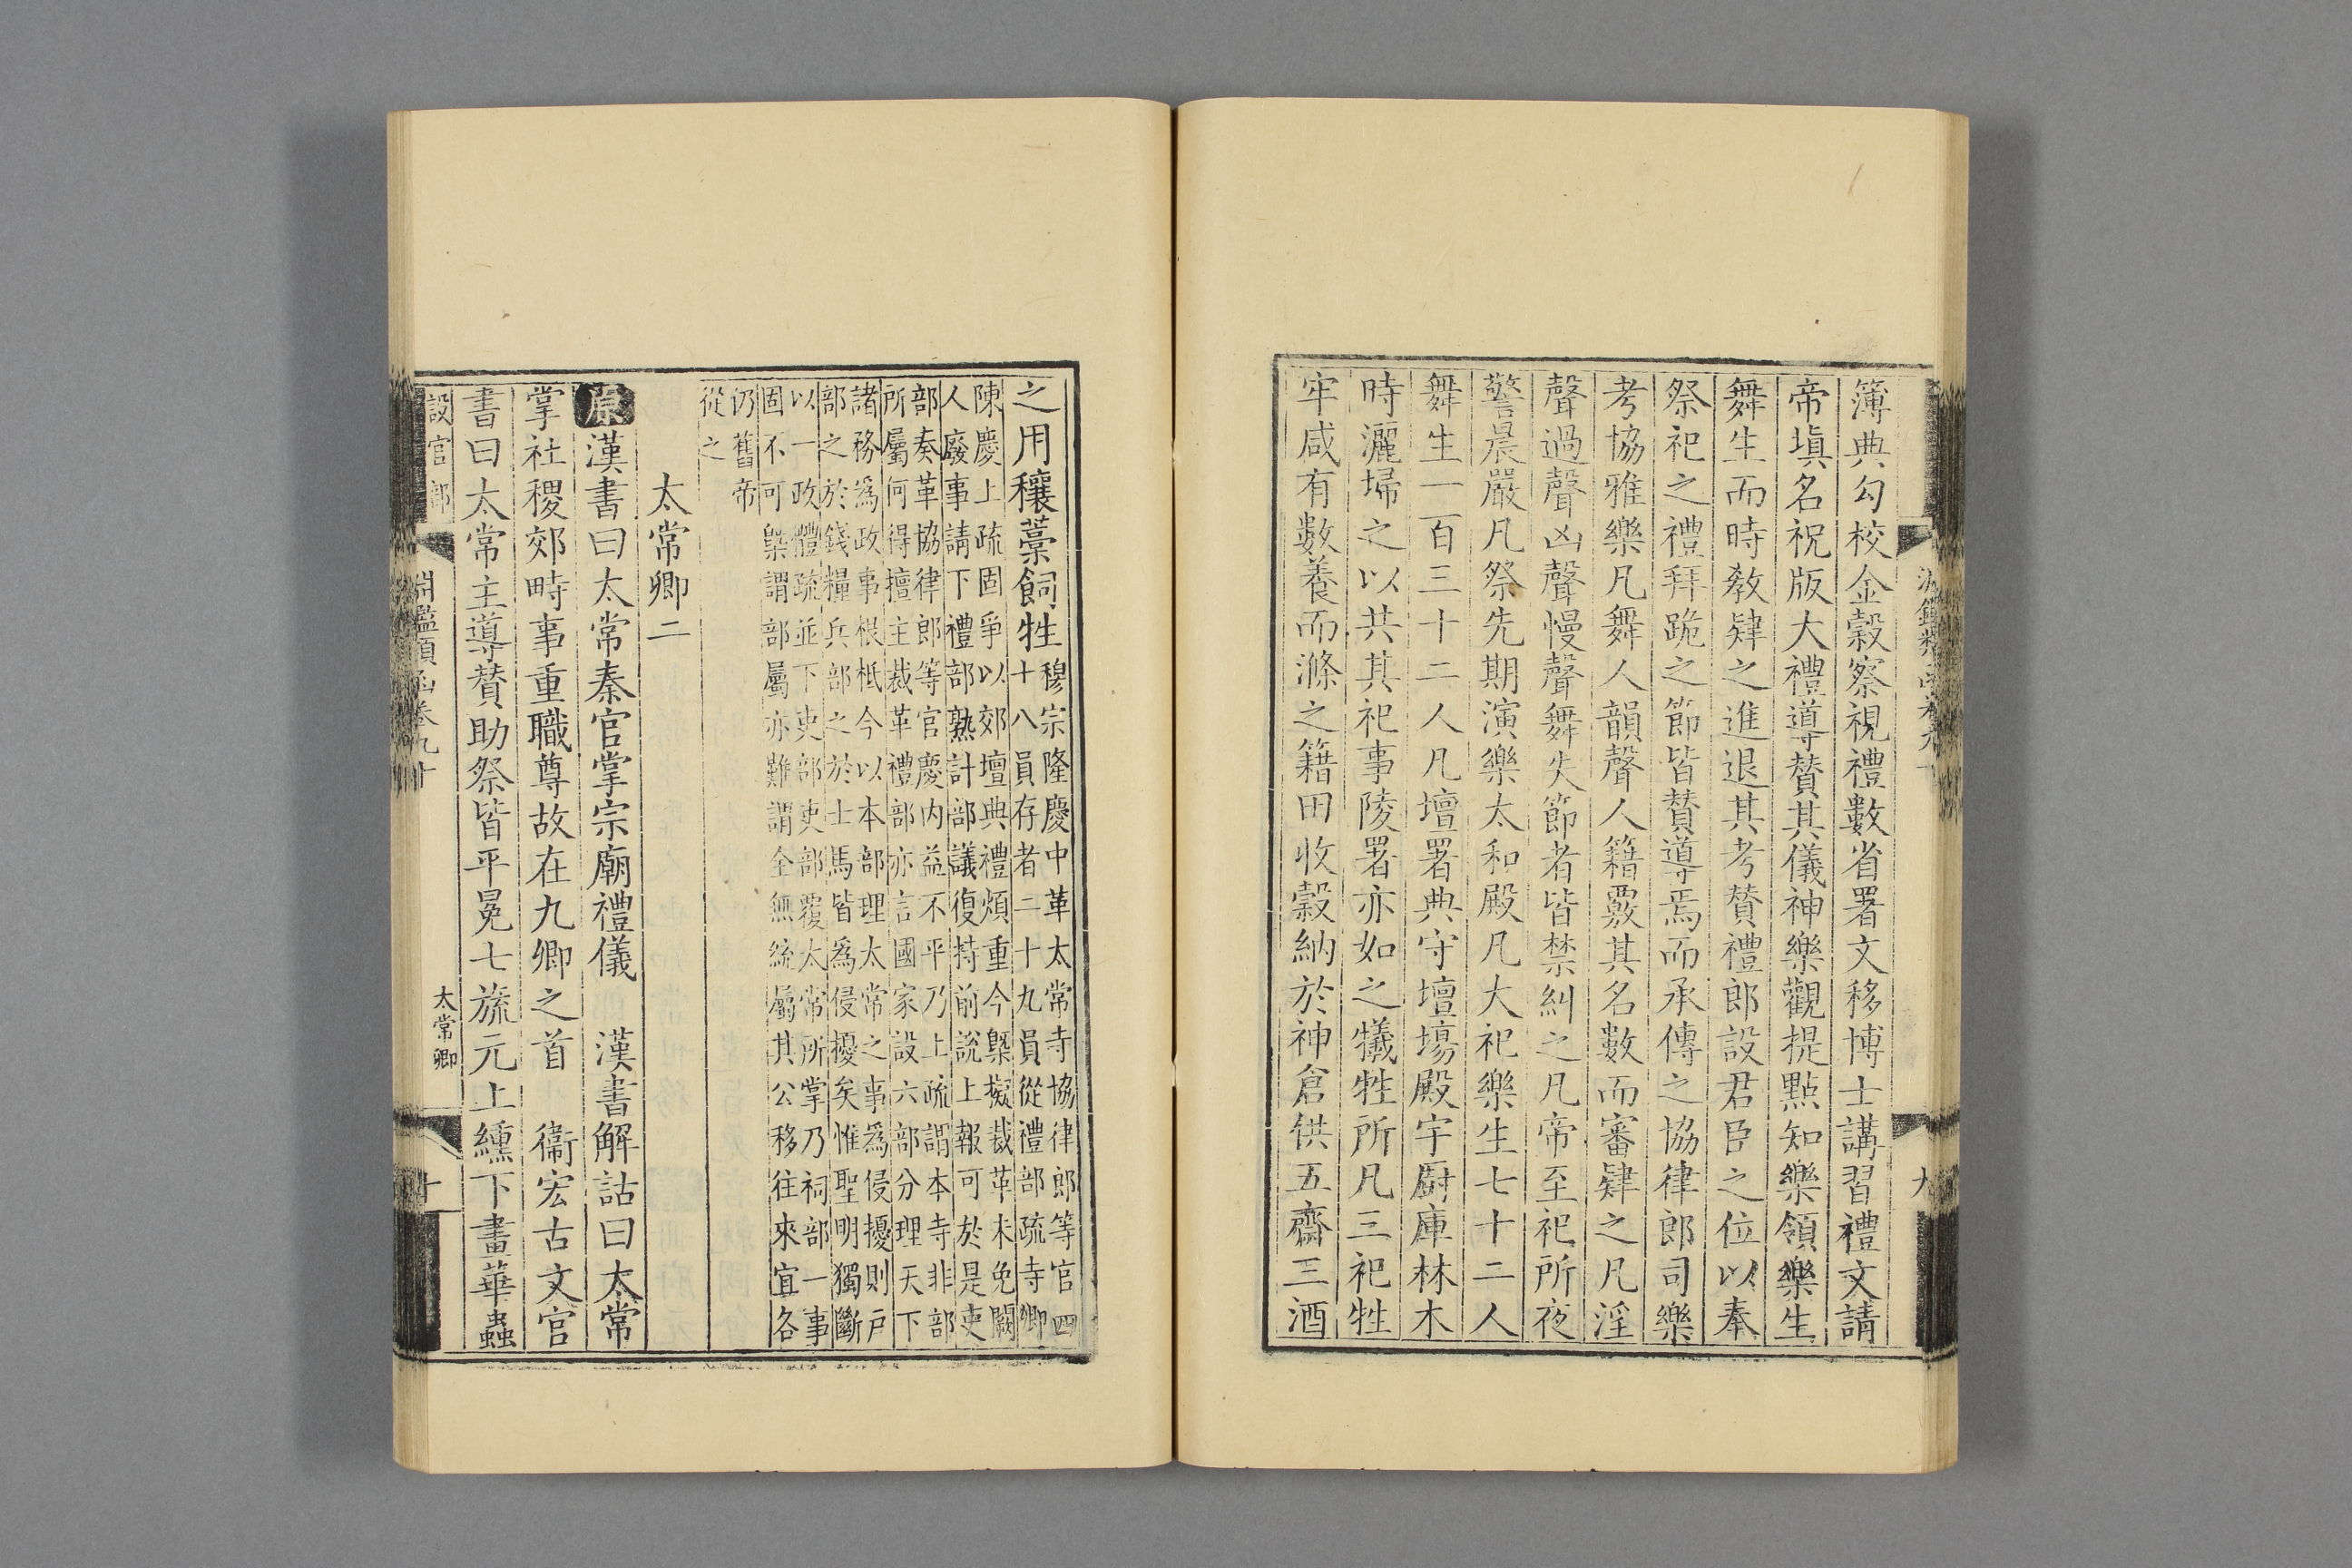 簿典勾校金穀察視禮數省署文移博士講習禮文請
帝填名祝版大禮導贊其儀神樂觀提點知樂領樂生
舞生而時教肄之進退其考贊禮郎設君臣之位以奉
祭祀之禮拜跪之節皆贊導焉而承傳之協律郎司樂
考協雅樂凡舞人韻聲人籍覈其名數而審肄之凡淫
聲過聲凶聲慢聲舞失節者皆禁糾之凡帝至祀所夜
警晨嚴凡祭先期演樂太和殿凡大祀樂生七十二人
舞生一百三十二人凡壇署典守壇場殿宇廚庫林木
時灑埽之以共其祀事陵署亦如之犧牲所凡三祀牲
牢咸有數養而滌之籍田收穀納於神倉供五齋三酒
之用穰藁飼牲
穆宗隆慶中革太常寺協律郎等官四
十八員存者二十九員從禮部疏寺卿
陳慶上疏固爭以郊壇典禮煩重今槩擬裁革未免闕
人廢事請下禮部熟計部議復持前說上報可於是吏
部奏革協律郎等官慶内益不平乃上疏謂本寺非部
所屬何得擅主裁革禮部亦言國家設六部分理天下
諸務為政事根柢今以本部理太常之事為侵擾則戶
部之於錢糧兵部之於士馬皆為侵擾矣惟聖明獨斷
以一政體疏並下吏部吏部覆太常所掌乃祠部一事
固不可槩謂部屬亦難謂全無統屬其公移往來宜各
仍舊帝
從之
太常卿二
原漢書曰太常秦官掌宗廟禮儀　漢書解詁曰太常
掌社稷郊畤事重職尊故在九卿之首　衞宏古文官
書曰太常主導贊助祭皆平冕七旒元上纁下畫華蟲
設官部
淵鑑類函卷九十
太常卿
十